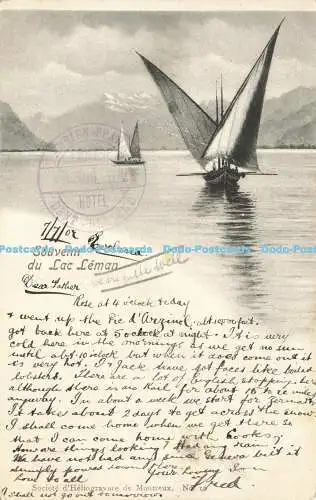 HOTEL
7/1/02
Souvenir
du Lac Léman
Dear Father
Rose at 4 o'clock today
& went up the Pic d'Arzinol, alt 10,000 feet.
got back here at 5 o'clock at night. It is very
cold here in the mornings as we get no sun
until abt 10 o'clock but when it does come out it
is very hot. I & Jack have got faces like boiled
lobsters. There are a lot of English stopping here
although there is no Rail for about 15 to 20 miles
anyway. In about a week we start for
It takes about 2 days to get across the snow.
I shall come home when we get there so
that I can come home with
How are things looking Had any rain
We have not had any since Geneva but it
simply poured down there.
Your loving Son
Fred
Société d'Héliogravure de Montreux. No
I shall not go out tomorrow
Postcards-World.com